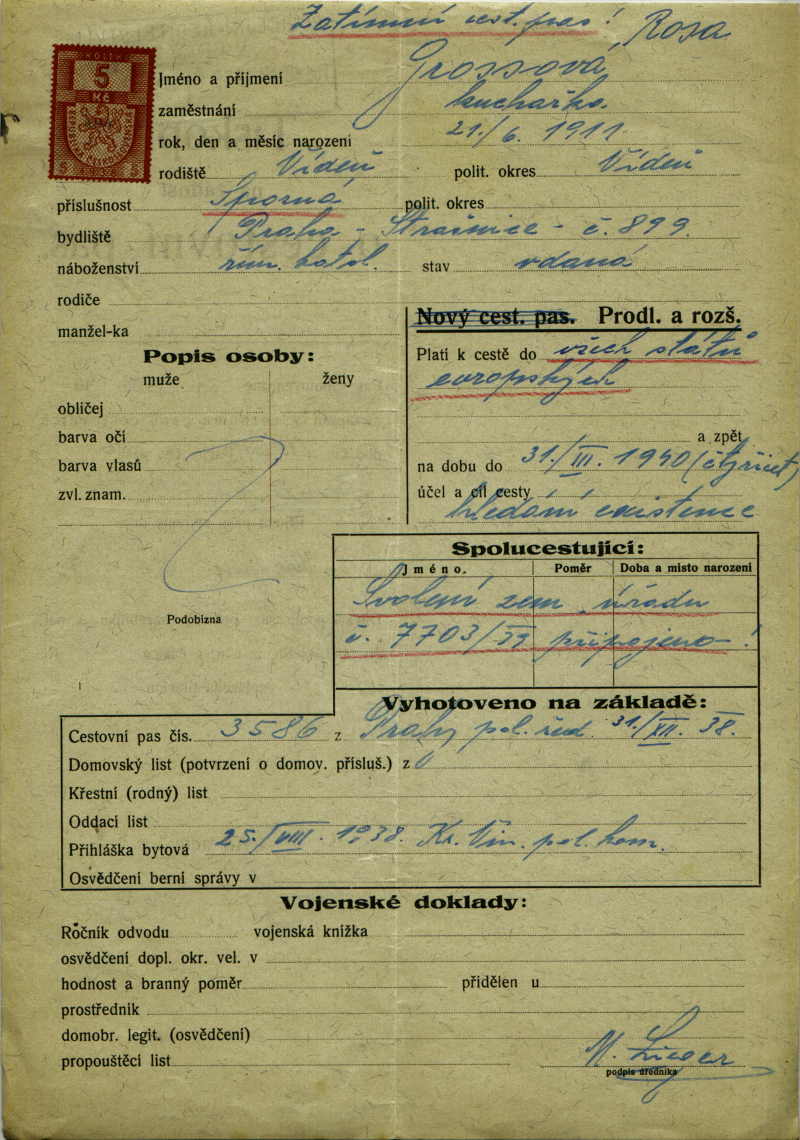 Zatímní cest. pas!
Rosa
5
Kč
Jméno a přijmení Grossová
zaměstnání kuchařka.
rok, den a měsíc narození 21./6. 1911.
rodiště Vídeň polit. okres Vídeň
příslušnost Sporná polit. okres
bydliště Praha - Strašnice - č. 899.
náboženství řím. katol. stav vdaná
rodiče
manžel-ka
Nový cest. pas. Prodl. a rozš.
Platí k cestě do všech států
evropských
a zpět
na dobu do 31./III. 1940 (čtyřicet)
účel a cíl cesty
hledání existence
Popis osoby:
muže ženy
obličej
barva očí
barva vlasů
zvl. znam.
Podobizna
Spolucestující:
Jméno. Poměr Doba a místo narození
Svolení zem. úřadu
č. 7703/39 připojeno - !
Vyhotoveno na základě:
Cestovní pas čís. 3586 z Prahy pol. řed. 31./XII. 38.
Domovský list (potvrzení o domov. přísluš.) z
Křestní (rodný) list
Oddací list
Přihláška bytová 25./VIII. 1938. Kr. Vin. pol. kom.
Osvědčení berní správy v
Vojenské doklady:
Ročník odvodu vojenská knížka
osvědčení dopl. okr. vel. v
hodnost a branný poměr přidělen u
prostředník
domobr. legit. (osvědčení)
propouštěcí list
podpis úředníka